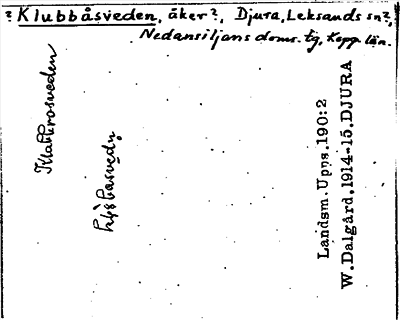 ? Klubbåsveden, åker?, Djura, Leksands sn?,
Nedansiljans doms. tg, Kopp. län.
Landsm. Upps. 190:2
W. Dalgård. 1914-15. DJURA